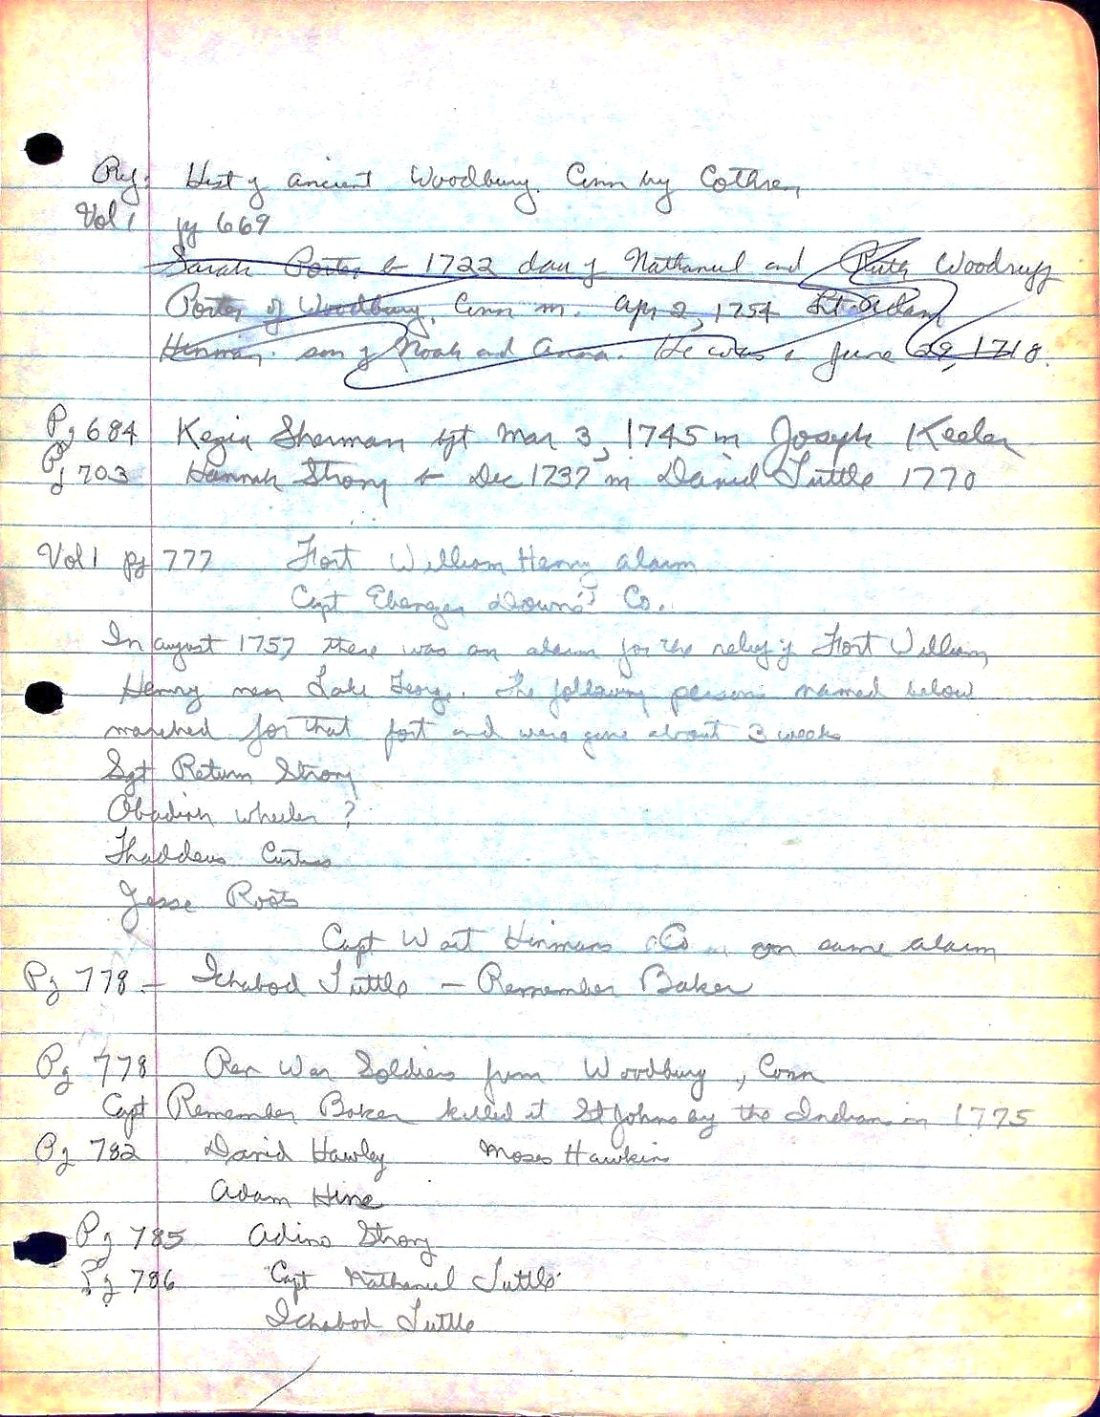 Ref: Hist of ancient Woodbury, Conn by Cothren
Vol 1 pg 669
Sarah Porter b 1722 dau of Nathaniel and Ruth Woodruff
Porter of Woodbury, Conn m. Apr 2, 1754 Lt Adam
Hinman. son of Noah and Anna. He was b June 29, 1718.
Pg 684 Kezia Sherman bpt Mar 3, 1745 m Joseph Keeler
Pg 703 Hannah Strong b Dec 1737 m David Tuttle 1770
Vol 1 pg 777 Fort William Henry alarm
Capt Ebenezer Downs' Co.
In august 1757 there was an alarm for the relief of Fort William
Henry near Lake George. The following persons named below
marched for that fort and were gone about 3 weeks
Sgt Return Strong
Obadiah Wheeler ?
Thaddeus Curtiss
Jesse Roots
Capt Wait Hinmans Co on same alarm
Pg 778 - Ichabod Tuttle - Remember Baker
Pg 778 Rev War Soldiers from Woodbury, Conn
Capt Remember Baker killed at St Johns by the Indians in 1775
Pg 782 David Hawley Moses Hawkins
Adam Hine
Pg 785 Adino Strong
Pg 786 Capt Nathaniel Tuttle
Ichabod Tuttle